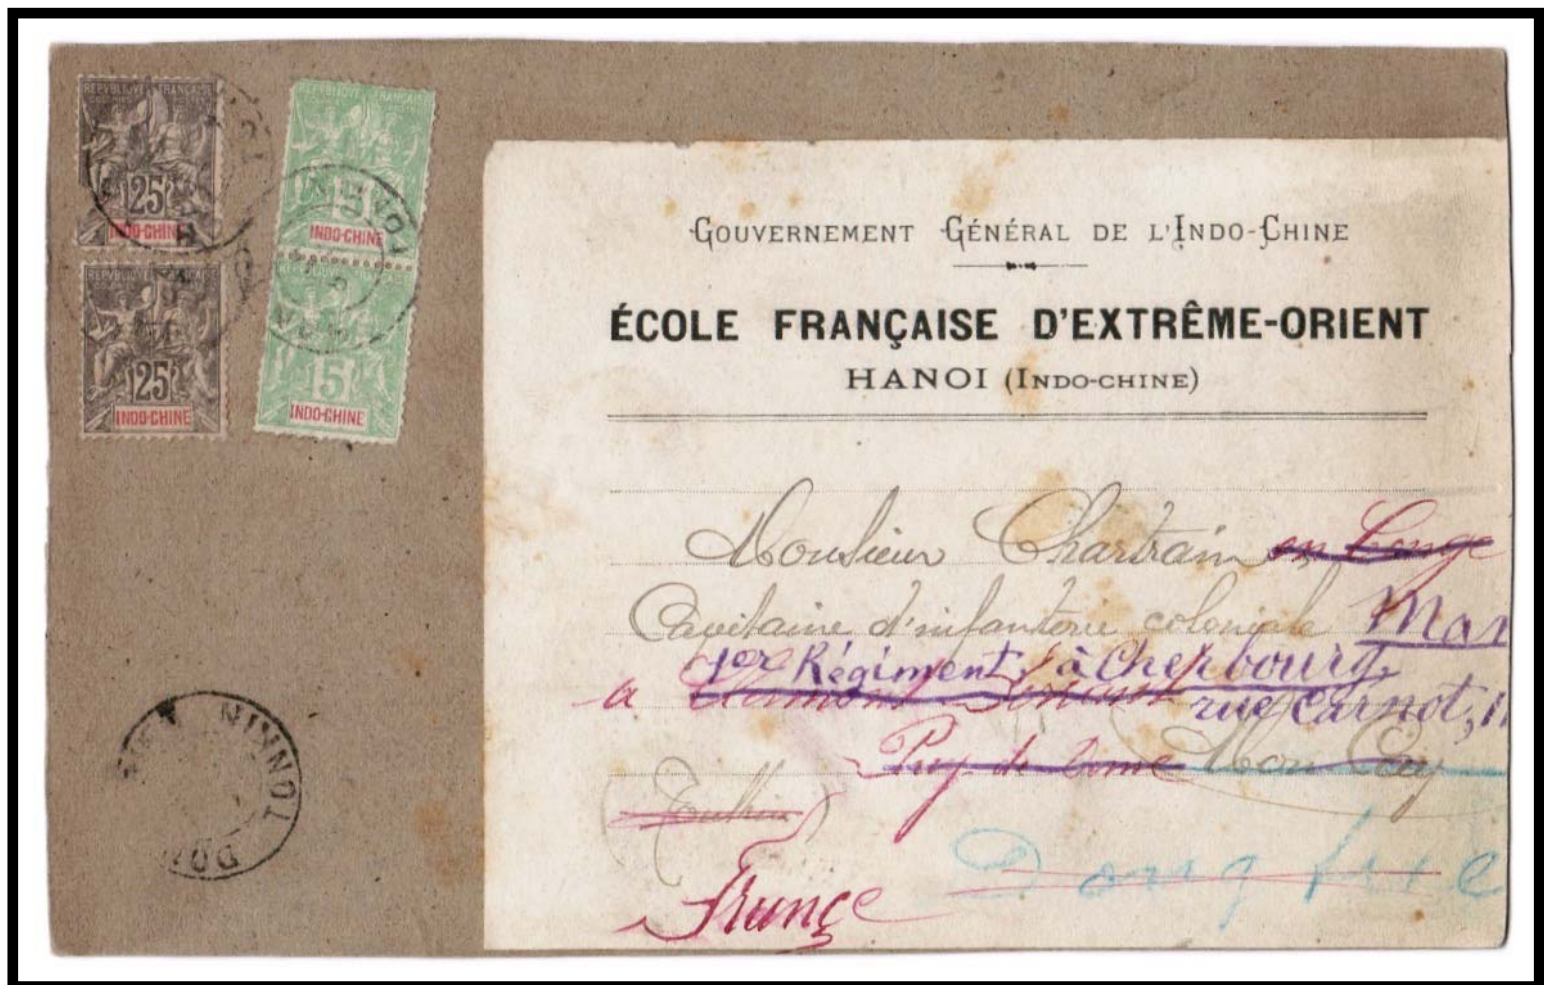 REPUBLIQUE FRANÇAISE
25
INDO-CHINE
REPUBLIQUE FRANÇAISE
25
INDO-CHINE
REPUBLIQUE FRANÇAISE
5
INDO-CHINE
REPUBLIQUE FRANÇAISE
5
INDO-CHINE
HANOI
TONKIN
GOUVERNEMENT GÉNÉRAL DE L'INDO-CHINE
ÉCOLE FRANÇAISE D'EXTRÊME-ORIENT
HANOI (INDO-CHINE)
Monsieur Chartrain en Congé
Capitaine d'infanterie coloniale
1er Régiment, à Cherbourg,
à Clermont Ferrand rue Carnot, 11
Puy-de-Dome Mon Cay
(Tonkin)
France Dong